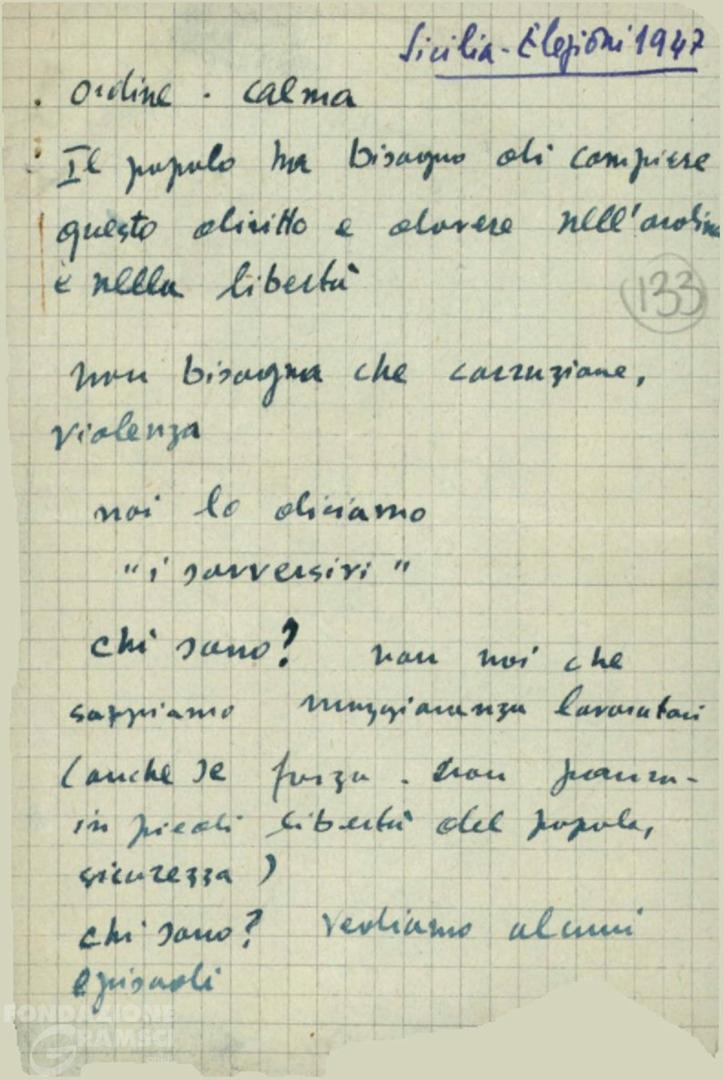 Sicilia - Elezioni 1947
. ordine . calma
: Il popolo ha bisogno di compiere
questo diritto e dovere nell'ordine
e nella libertà
133
non bisogna che corruzione,
violenza
noi lo diciamo
"i sovversivi"
chi sono? non noi che
sappiamo maggioranza lavoratori
(anche se forza . non
in piedi libertà del popolo,
sicurezza)
chi sono? vediamo alcuni
episodi
FONDAZIONE
GRAMSCI